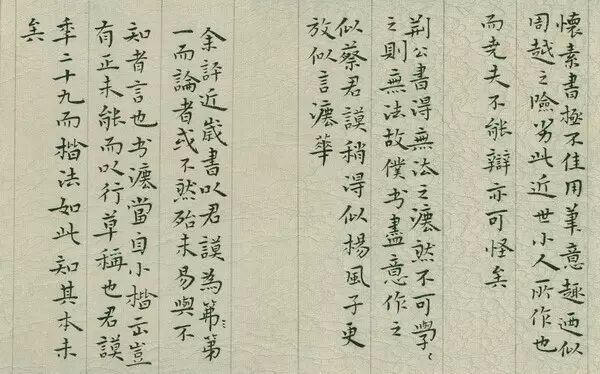 懷素書極不佳用筆意趣迺似
周越之險劣此近世小人所作也
而堯夫不能辯亦可怪矣
荆公書得無法之灋然不可學〻
之則無法故僕书盡意作之
似蔡君謨稍得似楊風子更
放似言灋華
余評近歲書以君謨為第第
一而論者或不然殆未易與不
知者言也书灋當自小楷出豈
有正未能而以行草稱也君謨
年二十九而楷法如此知其本末
矣